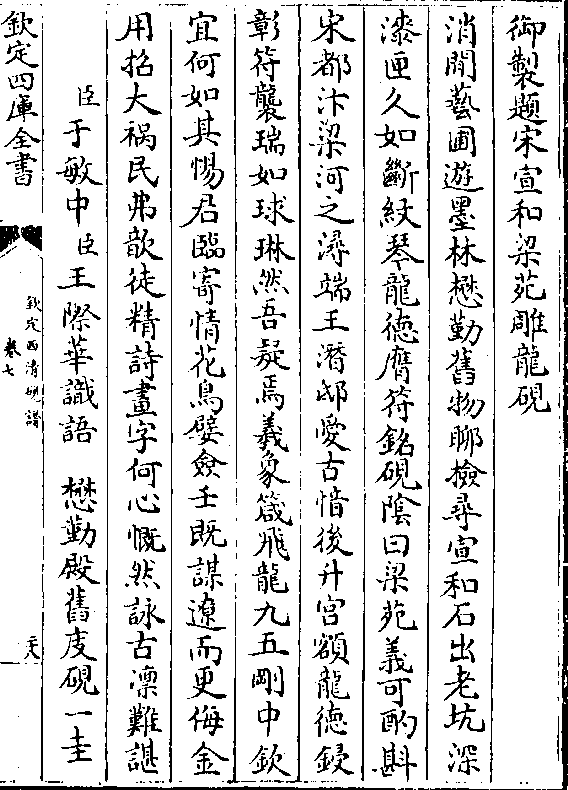 御製題宋宣和梁苑雕龍硯
消閒藝圃遊墨林懋勤舊物聊檢尋宣和石出老坑深
漆匣久如斷紋琴龍德膺符銘硯陰曰梁苑義可酌斟
宋都汴梁河之潯端王潛邸愛古愔後升宫額龍德鋟
彰符襲瑞如球琳然吾疑焉義象箴飛龍九五剛中欽
宜何如其惕君臨寄情花鳥嬖僉壬既謀遼而更侮金
用招大禍民弗歆徒精詩畫字何心慨然詠古凜難諶
臣于敏中臣王際華識語　懋勤殿舊庋硯一圭
欽定四庫全書
欽定西清硯譜
卷七